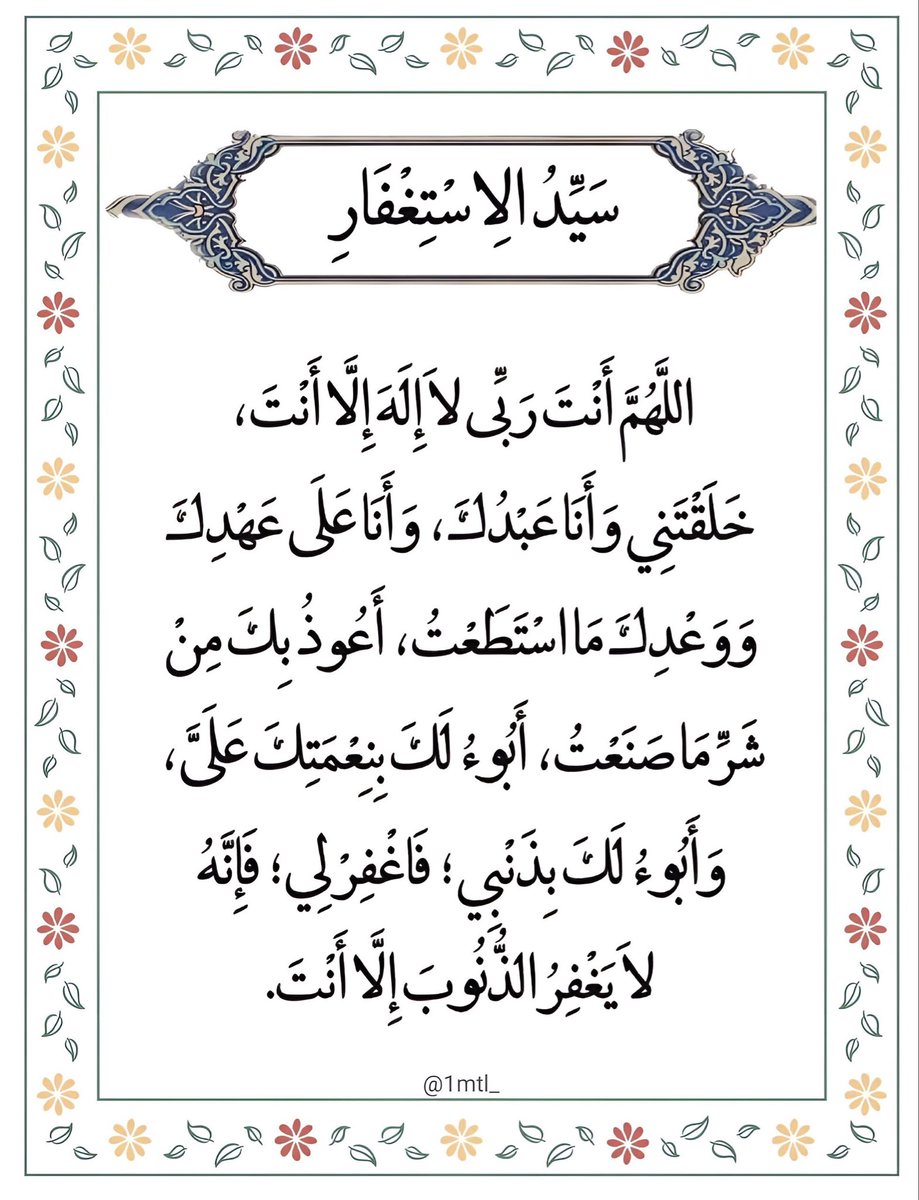 سَيِّدُ الِاسْتِغْفَارِ
اللَّهُمَّ أَنْتَ رَبِّى لاَ إِلَهَ إِلَّا أَنْتَ،
خَلَقْتَنِي وَأَنَا عَبْدُكَ، وَأَنَا عَلَى عَهْدِكَ
وَوَعْدِكَ مَا اسْتَطَعْتُ، أَعُوذُ بِكَ مِنْ
شَرِّ مَا صَنَعْتُ، أَبُوءُ لَكَ بِنِعْمَتِكَ عَلَىَّ،
وَأَبُوءُ لَكَ بِذَنْبِي؛ فَاغْفِرْ لِي؛ فَإِنَّهُ
لاَ يَغْفِرُ الذُّنُوبَ إِلَّا أَنْتَ.
@1mtl_